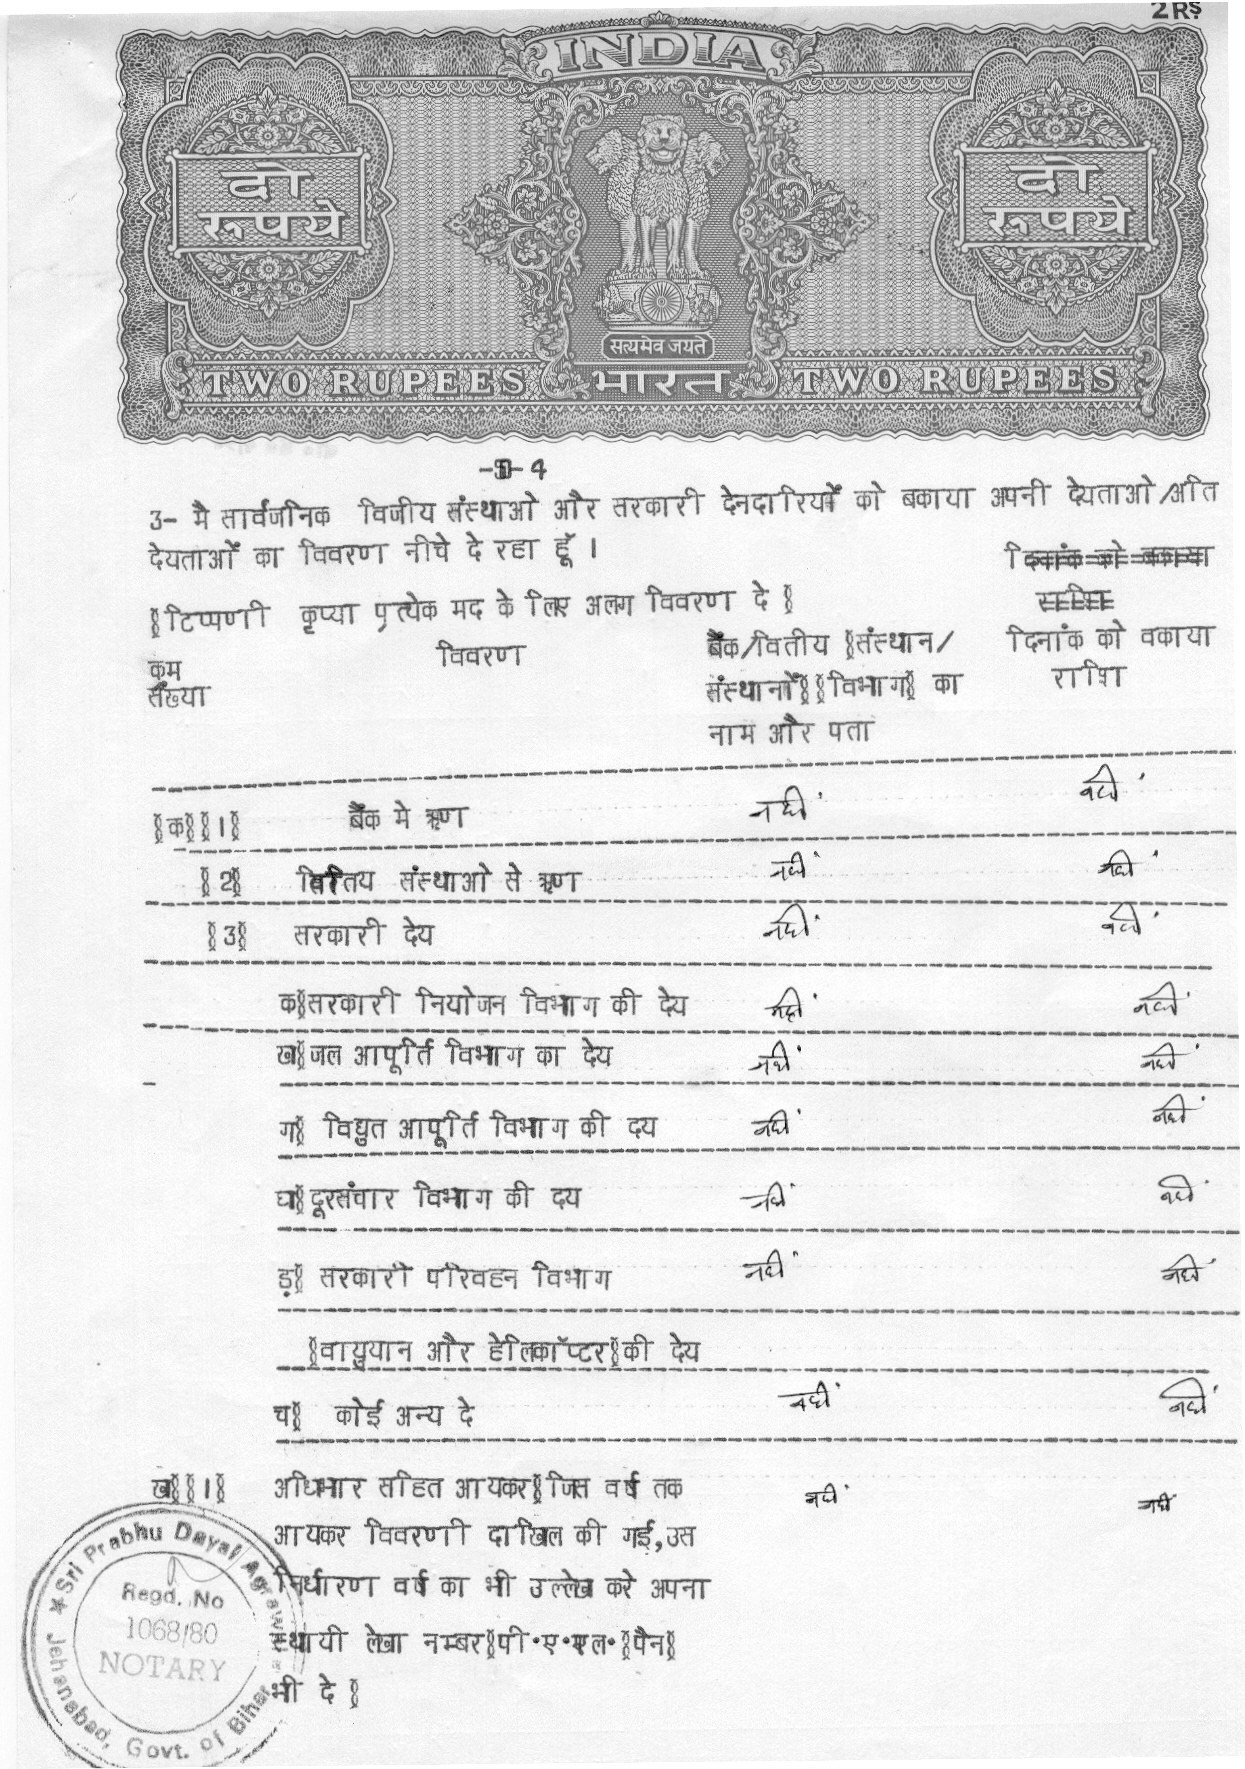 2 Rs.
INDIA
दो
रूपये
दो
रूपये
सत्यमेव जयते
TWO RUPEES भारत TWO RUPEES
4
3- मै सार्वजनिक विजीय संस्थाओ और सरकारी देनदारियों को बकाया अपनी देयताओ/अति
देयताओं का विवरण नीचे दे रहा हूँ ।
दिनांक को बकाया
राशि
(टिप्पणी कृप्या प्रत्येक मद के लिए अलग विवरण दे )
कम
संख्या
विवरण
बैंक/वितीय (संस्थान/
संस्थानों)(विभाग) का
नाम और पता
दिनांक को वकाया
राशि
(क)(1) बैंक मे ऋण नहीं नहीं
(2) वित्तिय संस्थाओ से ऋण नहीं नहीं
(3) सरकारी देय नहीं नहीं
क)सरकारी नियोजन विभाग की देय नहीं नहीं
ख)जल आपूर्ति विभाग का देय नहीं नहीं
ग) विद्युत आपूर्ति विभाग की दय नहीं नहीं
घ)दूरसंचार विभाग की दय नहीं नहीं
ड़) सरकारी परिवहन विभाग नहीं नहीं
(वायुयान और हेलिकॉप्टर)की देय
च) कोई अन्य दे नहीं नहीं
ख)(1) अधिभार सहित आयकर(जिस वर्ष तक नहीं नहीं
आयकर विवरणी दाखिल की गई,उस
निर्धारण वर्ष का भी उल्लेख करे अपना
स्थायी लेखा नम्बर(पी.ए.एल.(पैन)
भी दे )
Sri Prabhu Dayal Agrawal
Regd. No
1068/80
NOTARY
Jehanabad, Govt. of Bihar